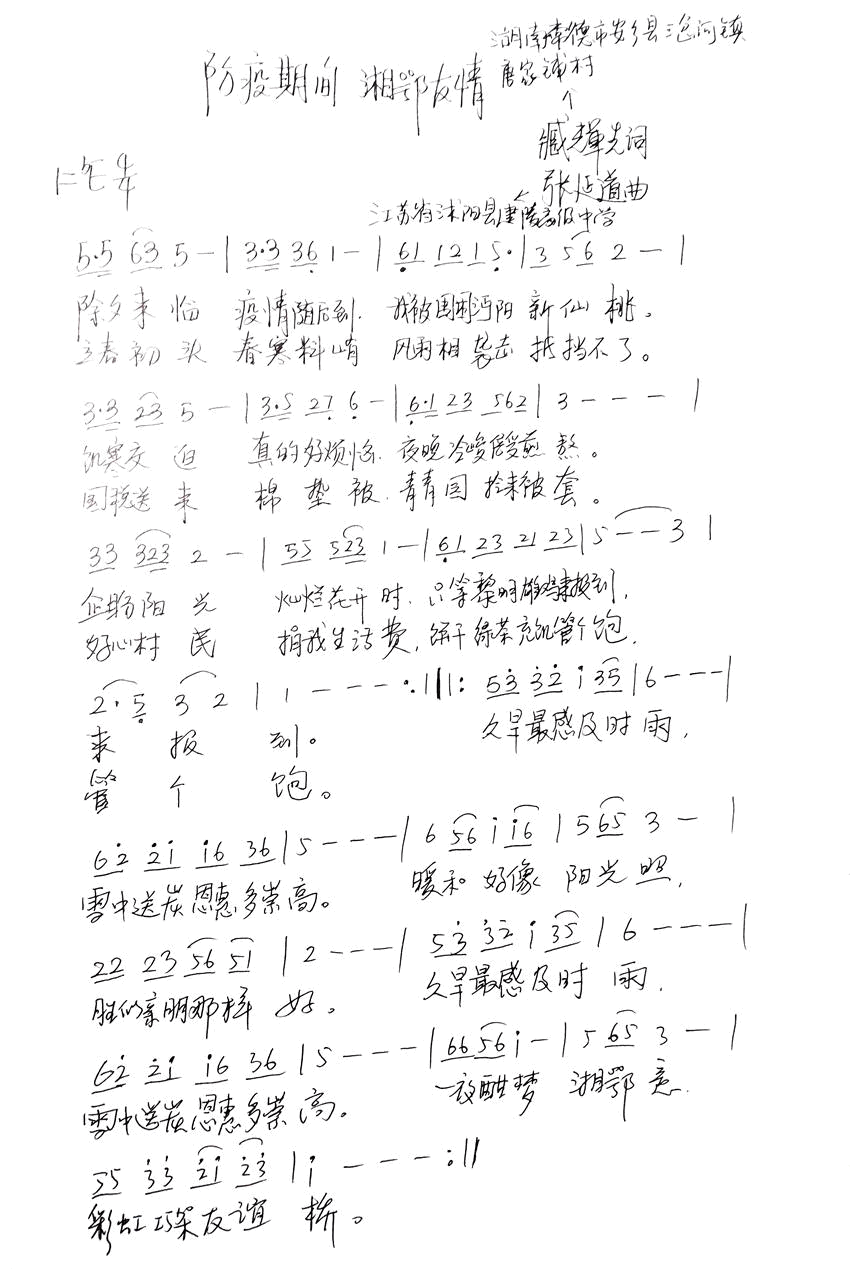 湖南常德市安乡县 河镇
防疫期间 湘鄂友情 唐家铺村
↑
臧 先词
1=E 4/4
← 张延道曲
江苏省沭阳县建陵高级中学
5·5 63 5 — | 3·3 36 1 — | 61 12 1 5· | 3 56 2 — |
除夕来临 疫情随后到. 我被围困沔阳新仙桃。
立春初头 春寒料峭 风雨相袭击抵挡不了。
3·3 23 5 — | 3·5 27 6 — | 6·1 23 562 | 3 — — — |
饥寒交迫 真的好烦恼. 夜晚冷 受煎熬。
国 送来 棉垫被. 青国 被套。
33 323 2 — | 55 523 1 — | 61 23 21 23 | 5 — — 3 |
企盼阳光 灿烂花开时. 只等黎明雄鸡来报到,
好心村民 捐我生活费, 饼干绿茶充饥管个饱.
2·5 3 2 | 1 — — — :||: 53 32 i 35 | 6 — — — |
来报到。 久旱最感及时雨,
管个饱。
62 2i i6 36 | 5 — — — | 6 56 i i6 | 5 65 3 — |
雪中送炭恩惠多崇高。 暖和好像阳光照,
22 23 56 51 | 2 — — — | 53 32 i 35 | 6 — — — |
胜似亲朋那样好。 久旱最感及时雨.
62 2i i6 36 | 5 — — — | 66 56 i — | 5 65 3 — |
雪中送炭恩惠多崇高。 一夜酣梦湘鄂意.
55 33 2i 23 | i — — — :||
彩虹巧架友谊桥。